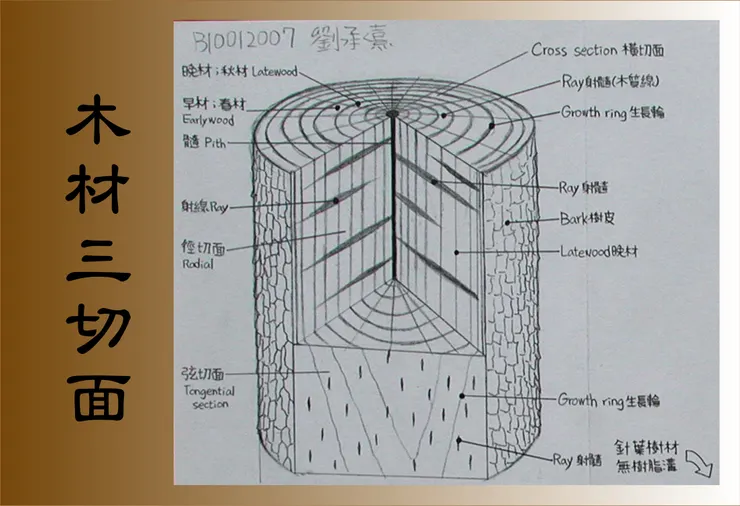 木材三切面
B10012007 劉承熹
晚材;秋材 Latewood
早材;春材
Earlywood
髓 Pith
射線Ray
徑切面
Radial
弦切面
Tangential
section
Cross section 橫切面
Ray 射髓(木質線)
Growth ring 生長輪
Ray 射髓
Bark樹皮
Latewood晚材
Growth ring 生長輪
Ray 射髓
針葉樹材
無樹脂溝